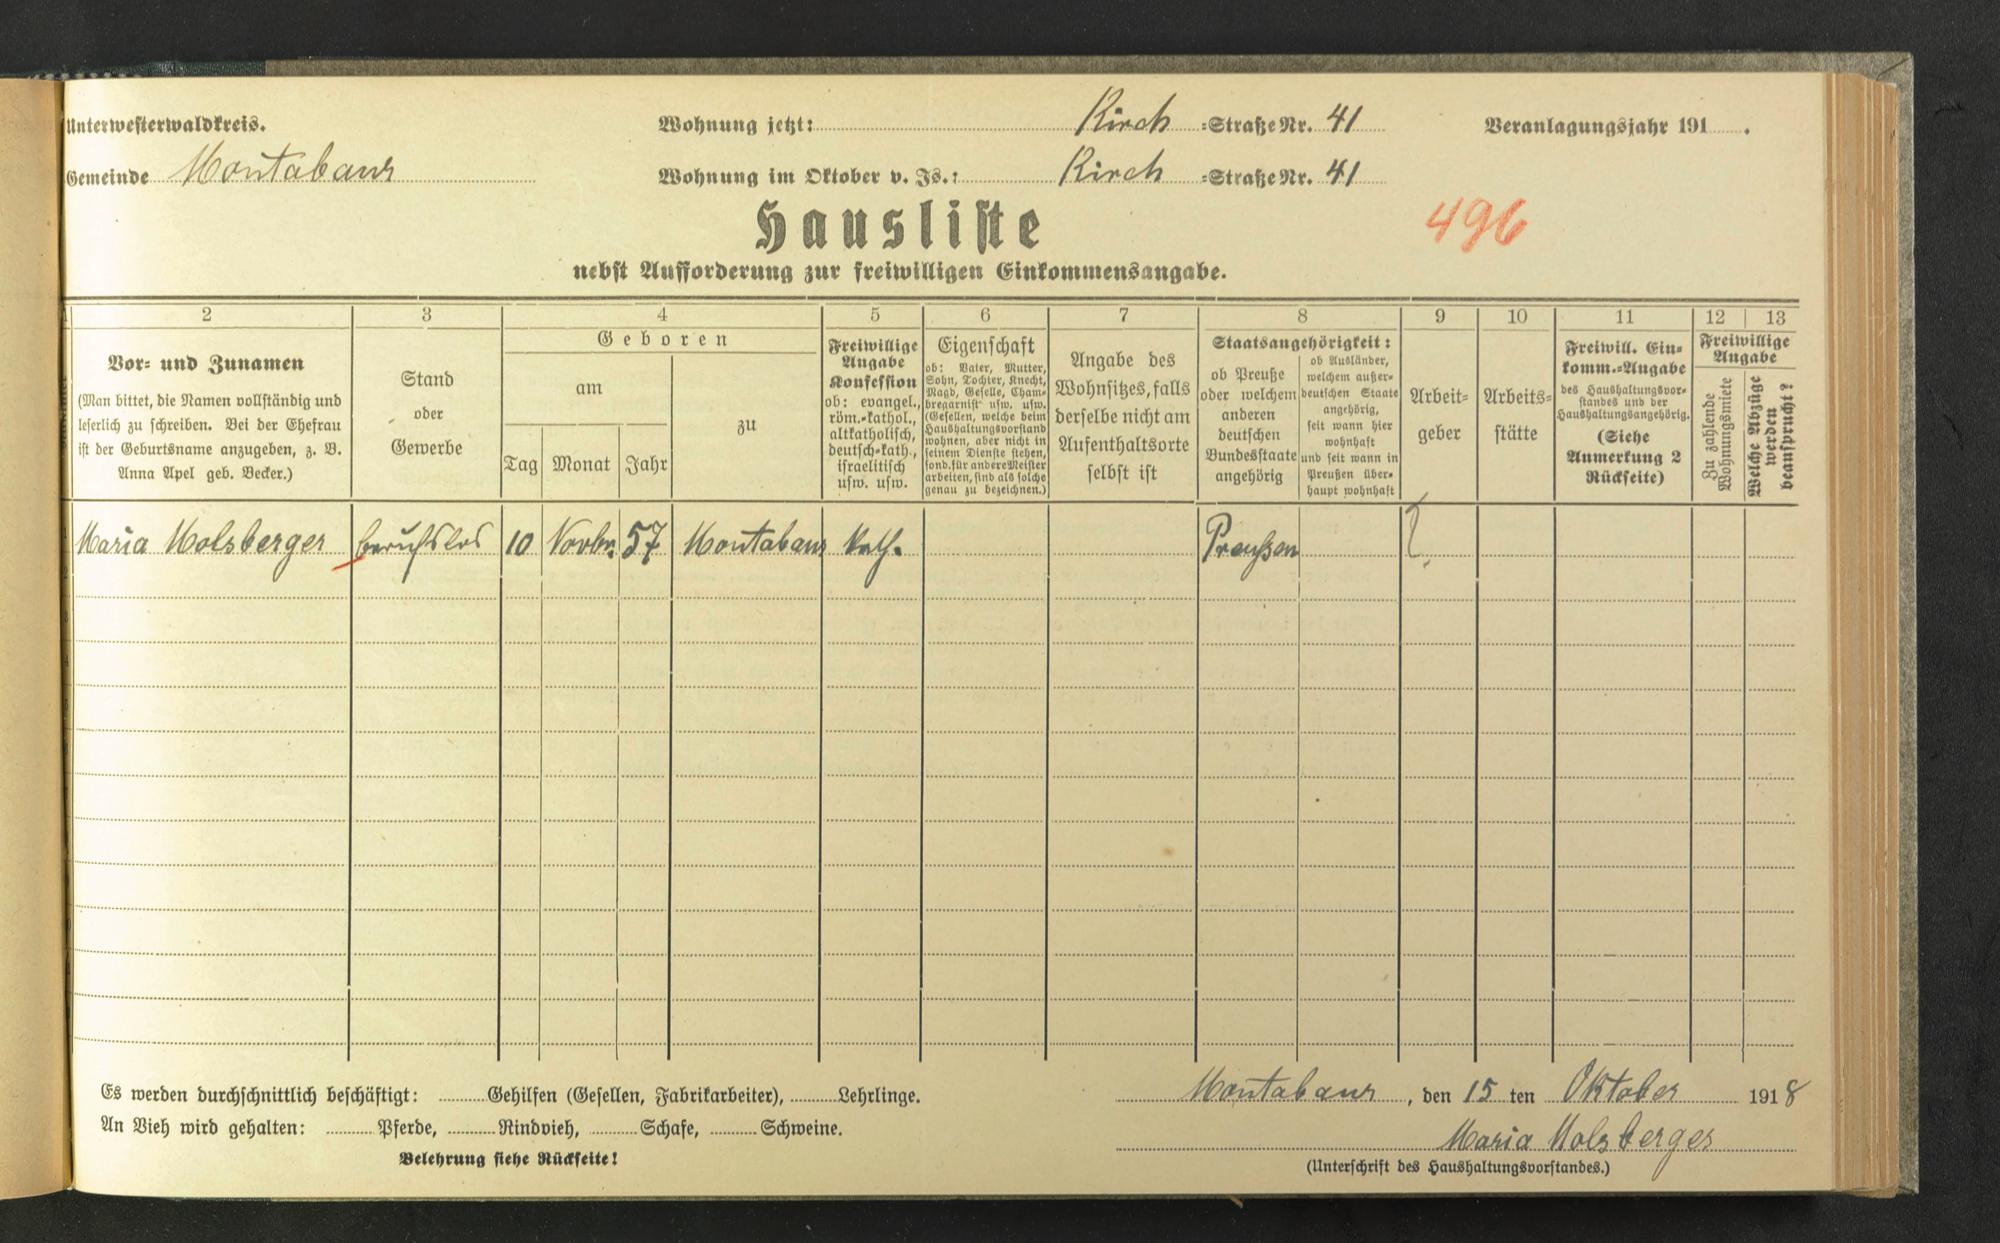 Unterwesterwaldkreis.
Wohnung jetzt: Kirch =Straße Nr. 41
Veranlagungsjahr 191 .
Gemeinde Montabaur
Wohnung im Oktober v. Js.: Kirch =Straße Nr. 41
Hausliste
496
nebst Aufforderung zur freiwilligen Einkommensangabe.
2
3
4
5
6
7
8
9
10
11
12
13
Vor= und Zunamen
(Man bittet, die Namen vollständig und
leserlich zu schreiben. Bei der Ehefrau
ist der Geburtsname anzugeben, z. B.
Anna Apel geb. Becker.)
Stand
oder
Gewerbe
Geboren
am
Tag
Monat
Jahr
zu
Freiwillige
Angabe
Konfession
ob: evangel.,
röm.=kathol.,
altkatholisch,
deutsch=kath.,
israelitisch
usw. usw.
Eigenschaft
ob: Vater, Mutter,
Sohn, Tochter, Knecht,
Magd, Geselle, Cham=
bregarnist usw. usw.
(Gesellen, welche beim
Haushaltungsvorstand
wohnen, aber nicht in
seinem Dienste stehen,
sond. für andere Meister
arbeiten, sind als solche
genau zu bezeichnen.)
Angabe des
Wohnsitzes, falls
derselbe nicht am
Aufenthaltsorte
selbst ist
Staatsangehörigkeit:
ob Preuße
oder welchem
anderen
deutschen
Bundesstaate
angehörig
ob Ausländer,
welchem außer=
deutschen Staate
angehörig,
seit wann hier
wohnhaft
und seit wann in
Preußen über=
haupt wohnhaft
Arbeit=
geber
Arbeits=
stätte
Freiwill. Ein=
komm.=Angabe
des Haushaltungsvor=
standes und der
Haushaltungsangehörig.
(Siehe
Anmerkung 2
Rückseite)
Freiwillige
Angabe
Zu zahlende
Wohnungsmiete
Welche Abzüge
werden
beansprucht?
Maria Molsberger berufslos 10 Novbr. 57 Montabaur kath. Preußen
Es werden durchschnittlich beschäftigt: Gehilfen (Gesellen, Fabrikarbeiter), Lehrlinge.
Montabaur, den 15 ten Oktober 1918
An Vieh wird gehalten: Pferde, Rindvieh, Schafe, Schweine.
Maria Molsberger
Belehrung siehe Rückseite!
(Unterschrift des Haushaltungsvorstandes.)